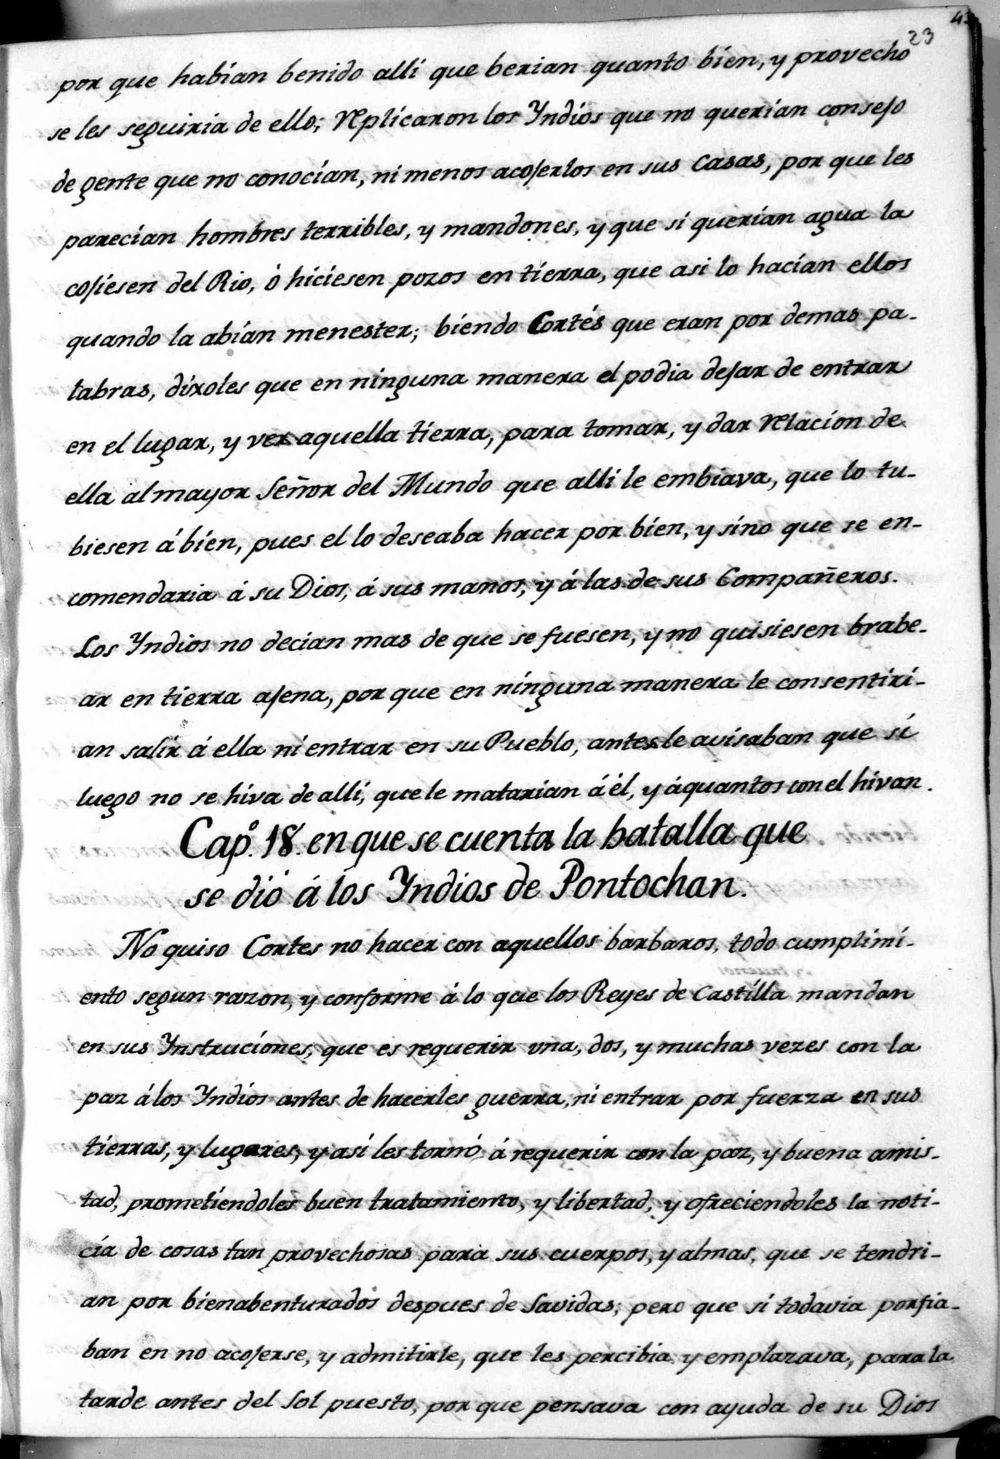 43
23
por que habían benido alli que berian quanto bien, y provecho
se les seguiria de ello; replicaron los Yndios que no querian consejo
de gente que no conocían, ni menos acojerlos en sus casas, por que les
parecían hombres terribles, y mandones, y que si querían agua la
cojiesen del Rio, ò hiciesen pozos en tierra, que asi lo hacían ellos
quando la abían menester; biendo Cortés que eran por demas pa-
labras, díxoles que en ninguna manera el podia dejar de entrar
en el lugar, y ver aquella tierra, para tomar, y dar relacion de
ella al mayor Señor del Mundo que alli le embiava, que lo tu-
biesen á bien, pues el lo deseaba hacer por bien, y sino que se en-
comendaria á su Dios, á sus manos, y á las de sus Compañeros.
Los Yndios no decian mas de que se fuesen, y no quisiesen brabe-
ar en tierra ajena, por que en ninguna manera le consentiri-
an salir á ella ni entrar en su Pueblo, antes le avisaban que si
luego no se hiva de alli, que le matarian á él, y á quantos con el hivan.
Capº. 18. en que se cuenta la batalla que
se dió á los Yndios de Pontochan.
No quiso Cortes no hacer con aquellos barbaros, todo cumplimi-
ento segun razon, y conforme á lo que los Reyes de Castilla mandan
en sus Ynstruciones, que es requerir una, dos, y muchas vezes con la
paz á los Yndios antes de hacerles guerra, ni entrar por fuerza en sus
tierras, y lugares, y así les tornó á requerir con la paz, y buena amis-
tad, prometiendoles buen tratamiento, y libertad, y ofreciendoles la noti-
cia de cosas tan provechosas para sus cuerpos, y almas, que se tendri-
an por bienabenturados despues de savidas; pero que si todavia porfia-
ban en no acojerse, y admitirle, que les percibia y emplazava, para la
tarde antes del Sol puesto, por que pensava con ayuda de su Dios